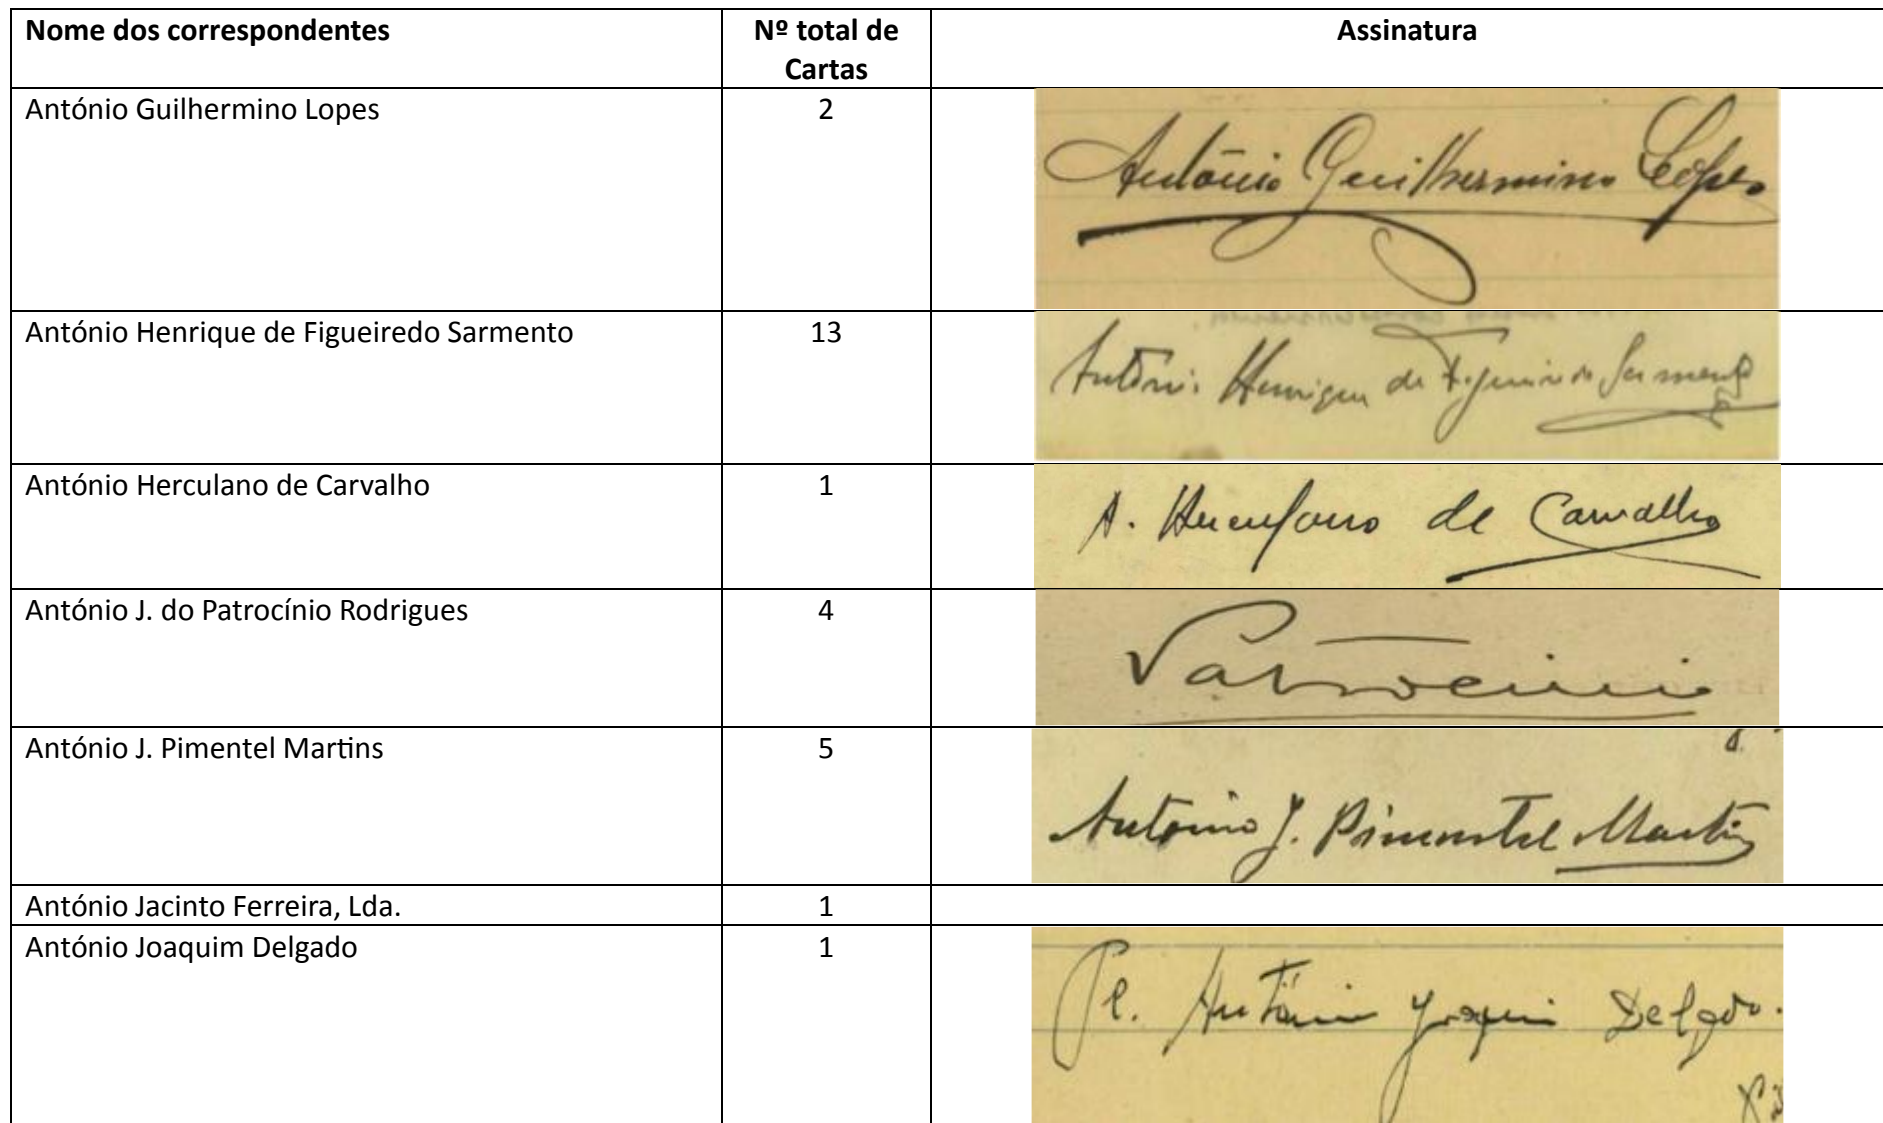 Nome dos correspondentes
Nº total de
Cartas
Assinatura
António Guilhermino Lopes
2
António Guilhermino Lopes
António Henrique de Figueiredo Sarmento
13
António Henrique de Figueiredo Sarmento
António Herculano de Carvalho
1
A. Herculano de Carvalho
António J. do Patrocínio Rodrigues
4
Patrocinio
António J. Pimentel Martins
5
Antonio J. Pimentel Martins
António Jacinto Ferreira, Lda.
1
António Joaquim Delgado
1
Pe. António Joaquim Delgado.